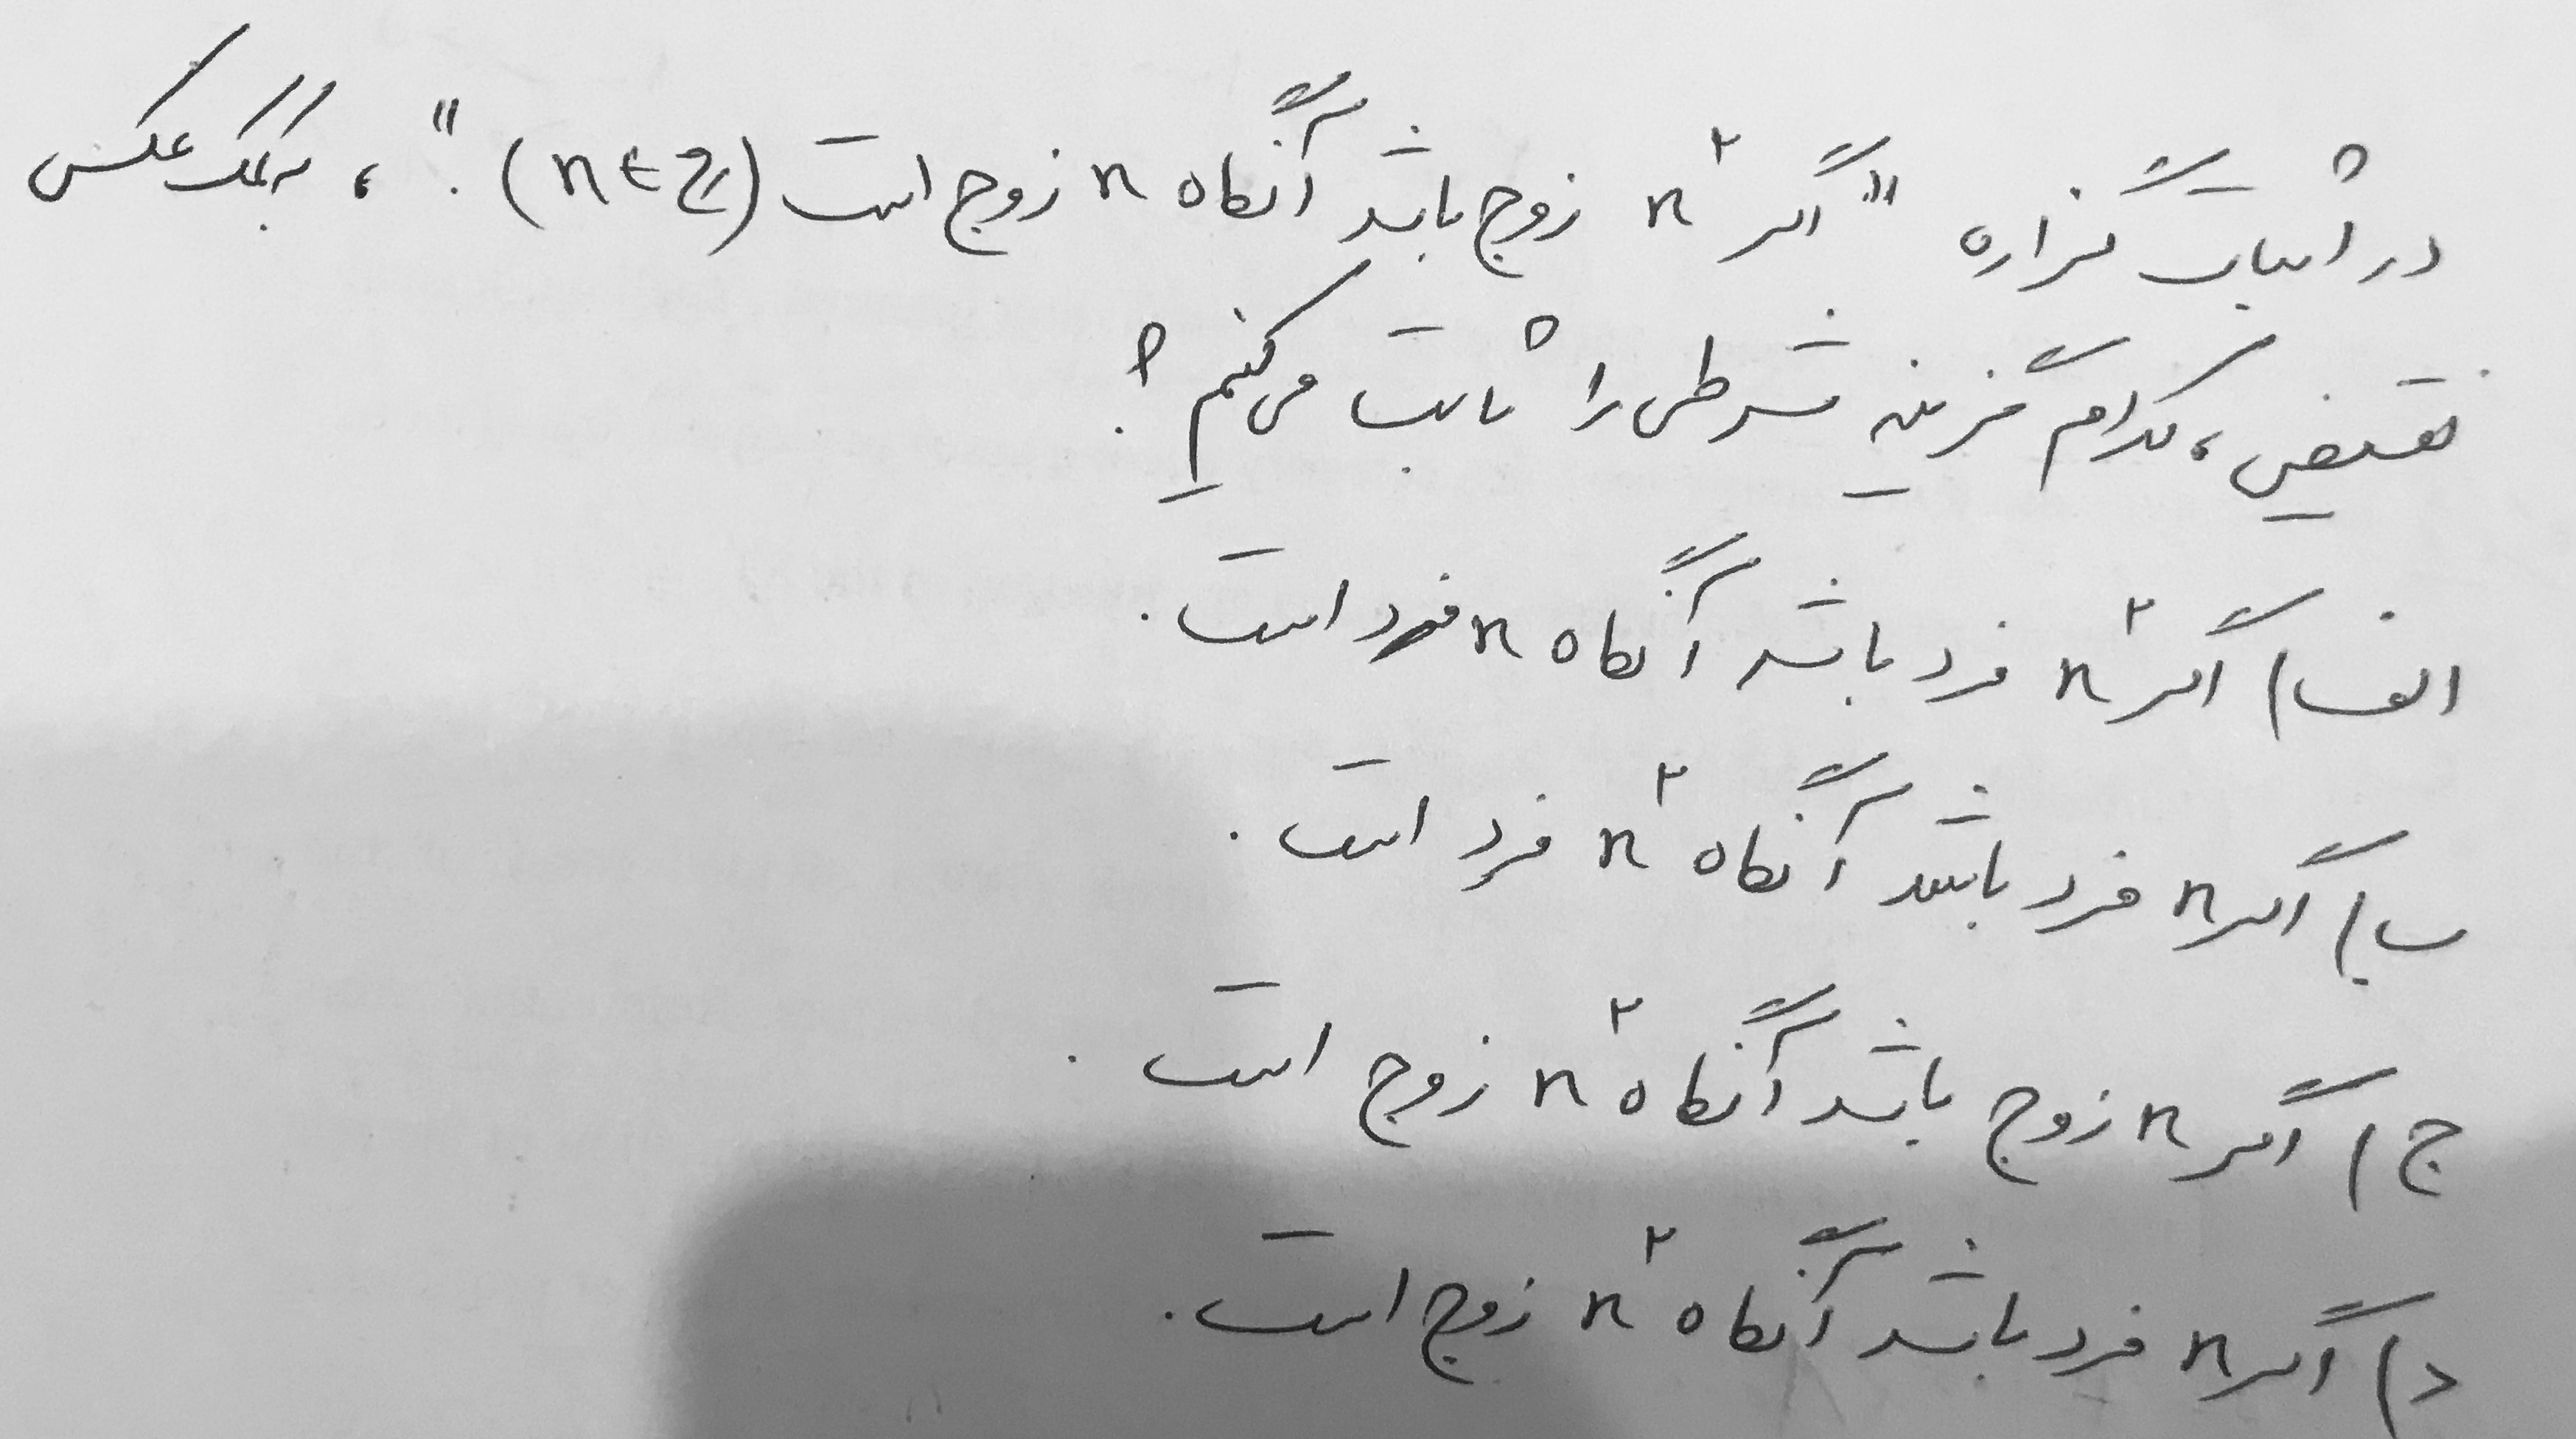 در اثبات گزاره "اگر n² زوج باشد آنگاه n زوج است (n∈Z)."، به کمک عکس
نقیض، کدام گزینه شرطی را ثابت می‌کنیم؟
الف) اگر n² فرد باشد آنگاه n فرد است.
ب) اگر n فرد باشد آنگاه n² فرد است.
ج) اگر n زوج باشد آنگاه n² زوج است.
د) اگر n فرد باشد آنگاه n² زوج است.